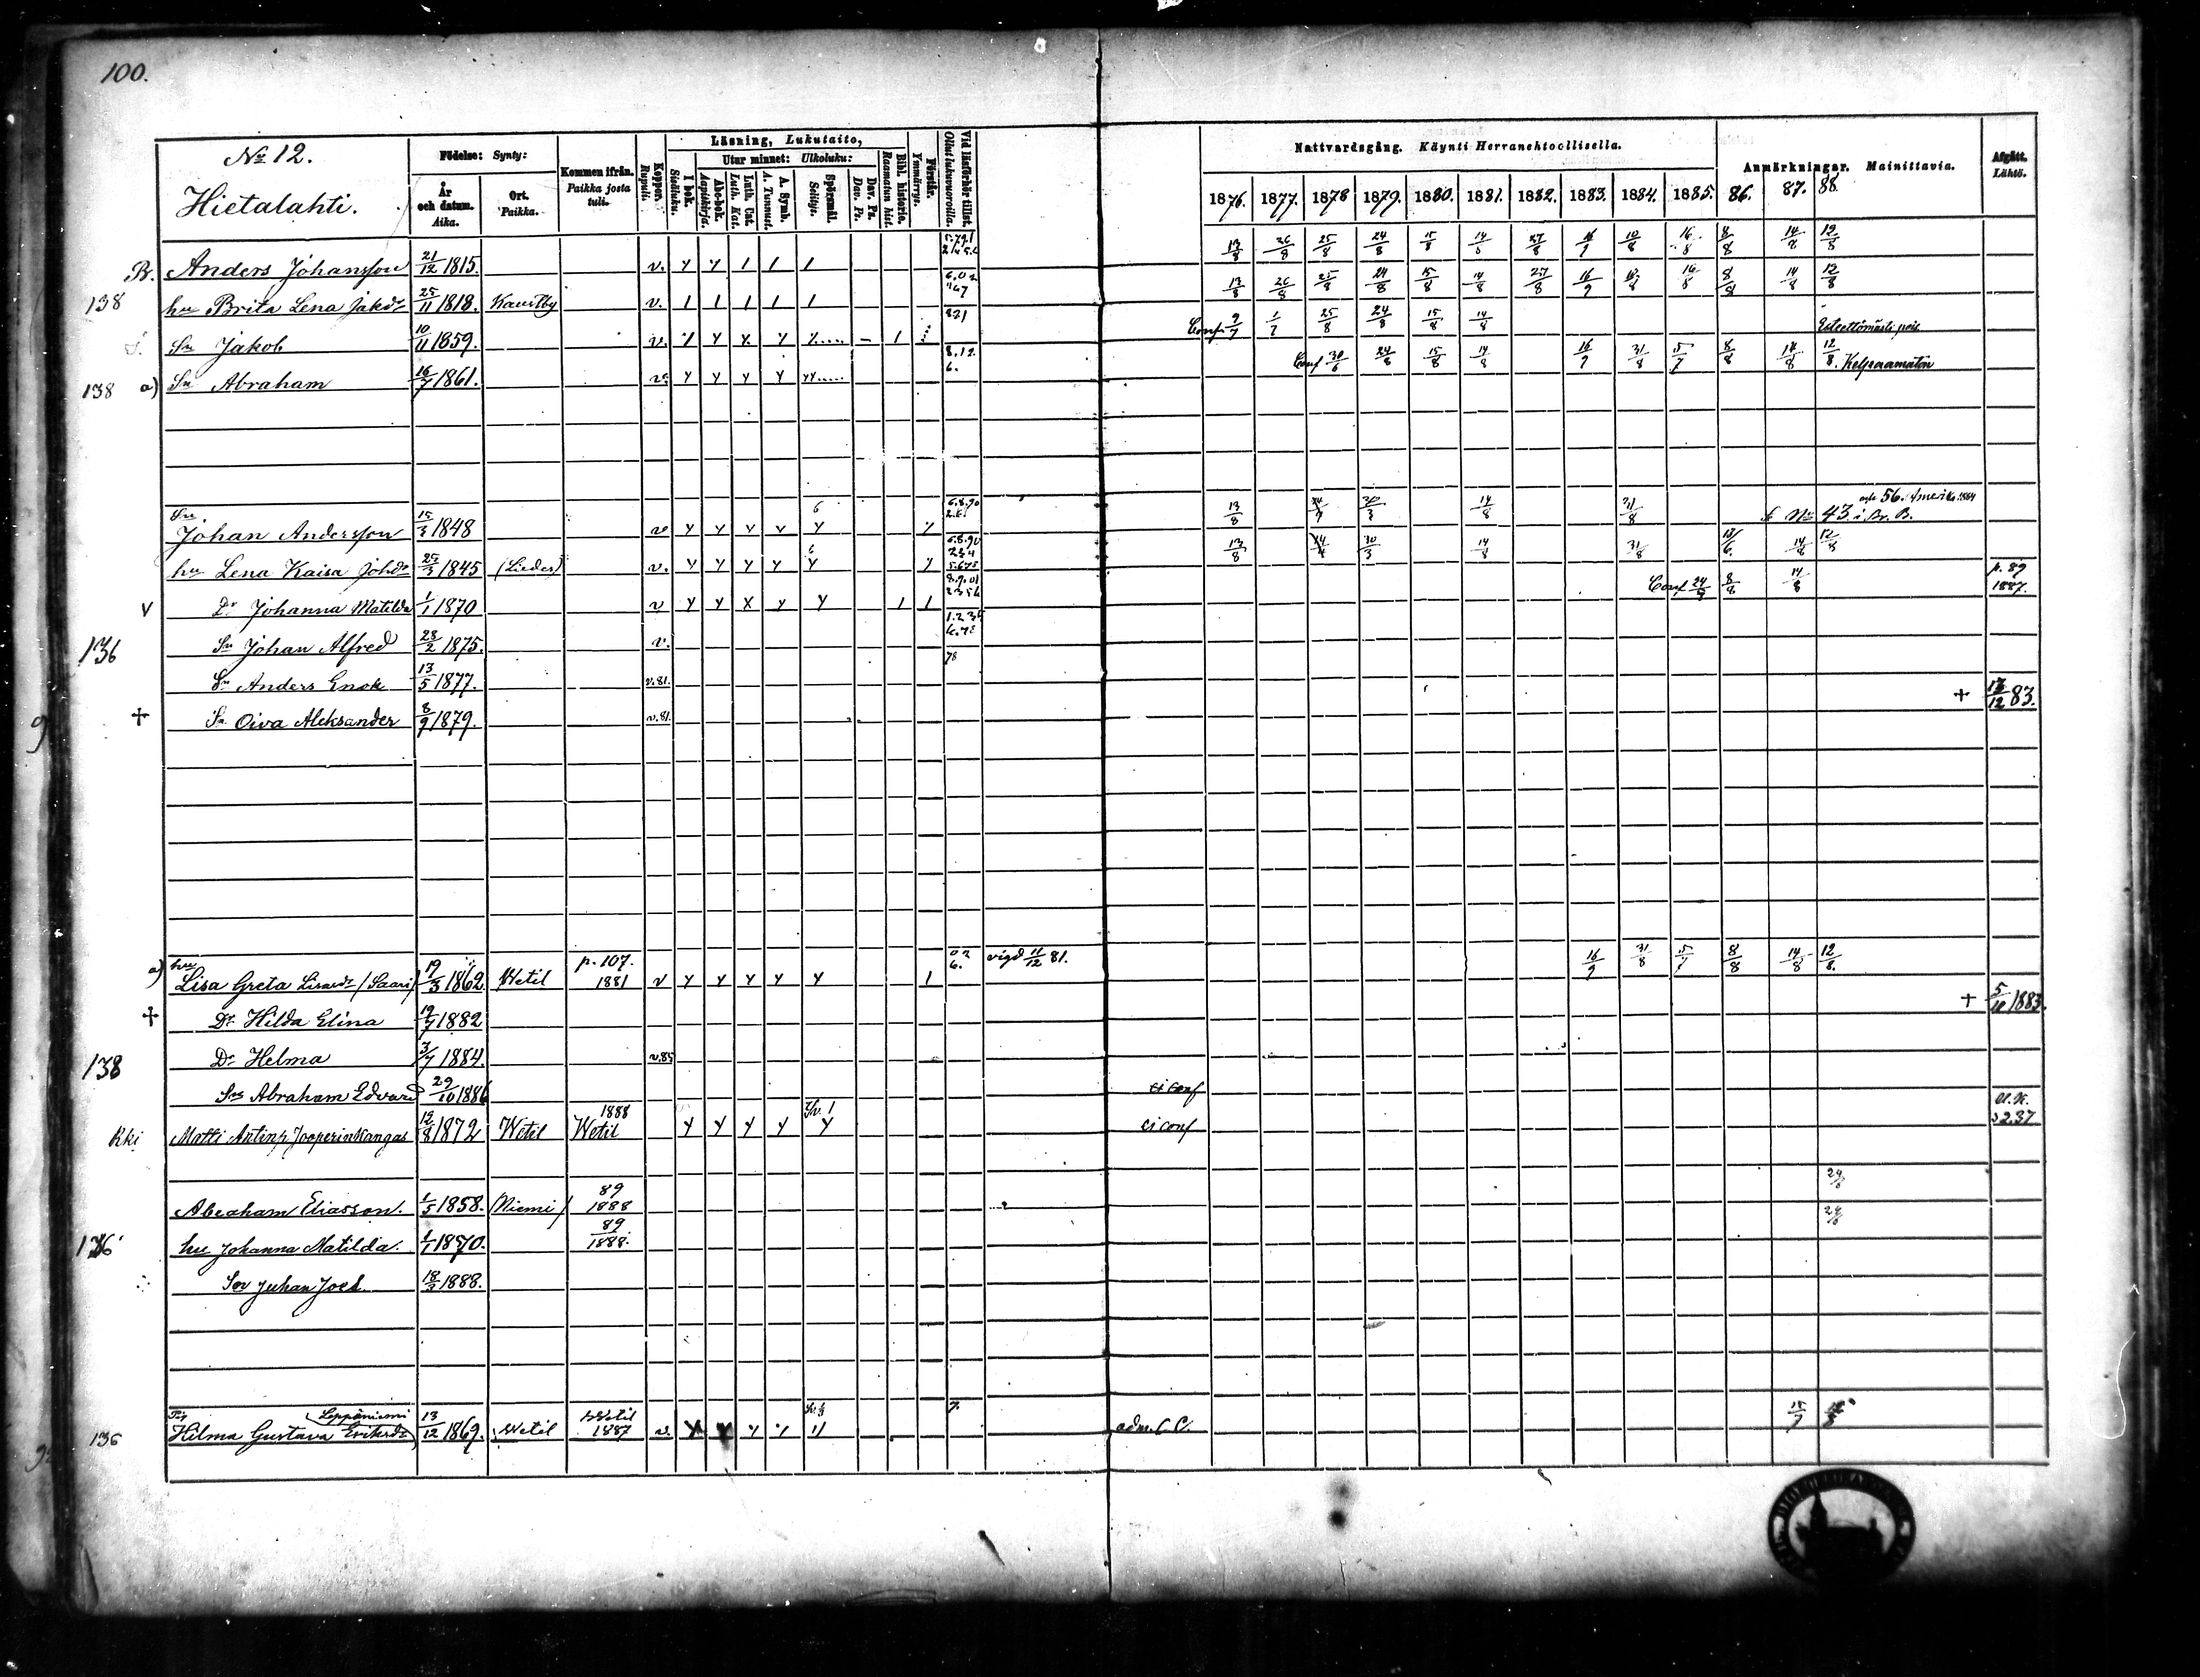 100.
No 12.
Hietalahti.
Födelse: Synty:
År och datum. Aika.
Ort. Paikka.
Kommen ifrån. Paikka josta tuli.
Koppor. Rupuli.
Läsning, Lukutaito,
I bok. Sisäluku.
Utur minnet: Ulkoluku:
Abc-bok. Aapiskirja.
Luth. Cat. Luth. Kat.
A. Symb. A. Tunnust.
Spörsmål. Selitys.
Dav. Ps. Dav. Ps.
Bibl. historie. Raamatun hist.
Förstår. Ymmärrys.
Vid läsförhör tillst. Ollut lukuvuoroilla.
Nattvardsgång. Käynti Herranehtoollisella.
1876. 1877. 1878 1879. 1880. 1881. 1882. 1883. 1884. 1885. 86. 87. 88.
Anmärkningar. Mainittavia.
Afgått. Lähtö.
B. Anders Johansson 21/12 1815. v. 13/8 26/8 25/8 24/8 15/8 14/8 27/8 16/9 10/8 16/8 8/8 14/8 12/8
138 hu Brita Lena Jakdr 25/11 1818. Kaustby v. 13/8 26/8 25/8 24/8 15/8 14/8 27/8 16/9 16/8 8/8 14/8 12/8
Sn Jakob 10/11 1859. v. 821 Conf. 9/7 1/7 25/8 24/8 15/8 14/8
138 a) Sn Abraham 16/7 1861. v. 8.12. 6. Conf 30/6 24/8 15/8 14/8 16/9 31/8 15/7 8/8 14/8 12/8. Kelpaamatoin
Sn
Johan Andersson 15/3 1848 v 13/8 14/8 31/8 No 43 i Br. B. 56. Amerik. 1884
hu Lena Kaisa Johdr 25/3 1845 (Lieder) v. 13/8 30/3 14/8 31/8 14/8 12/8
v Dr Johanna Matilda 1/1 1870 v Conf 24/8 8/8 14/8 p. 89 1887.
136 Sn Johan Alfred 23/2 1875. v.
Sn Anders Enok 13/5 1877. v.81. 78
+ Sn Oiva Aleksander 8/9 1879. v.81. + 13/12 83.
a) hu
Lisa Greta (Saari) 19/3 1862. Wetil p. 107. 1881 v vigd 11/12 81. 16/9 31/8 15/7 8/8 14/8 12/8.
+ Dr Hilda Elina 19/7 1882 + 5/10 1883.
138 Dr Helma 3/7 1884. v.85
Sn Abraham Edvard 29/10 1886 ei conf
Rki Matti Antinp. Jooperinkangas 12/8 1872 Wetil 1888 Wetil ei conf U.K. 237
Abraham Eliasson. 1/5 1858. (Niemi) 89 1888
136 hu Johanna Matilda. 1/1 1870. 89 1888.
Sn Juhan Joel. 18/3 1888.
Pig Leppäniemi
136 Hilma Gustava Eriksdr 13/12 1869. Wetil Wetil 1887 v. 7. adm. C. C. 15/7